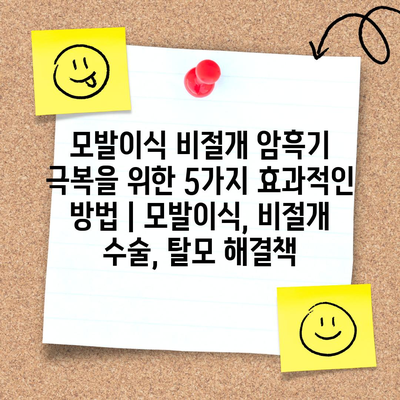 모발이식 비절개 암흑기
극복을 위한 5가지 효과적인
방법 | 모발이식, 비절개
수술, 탈모 해결책